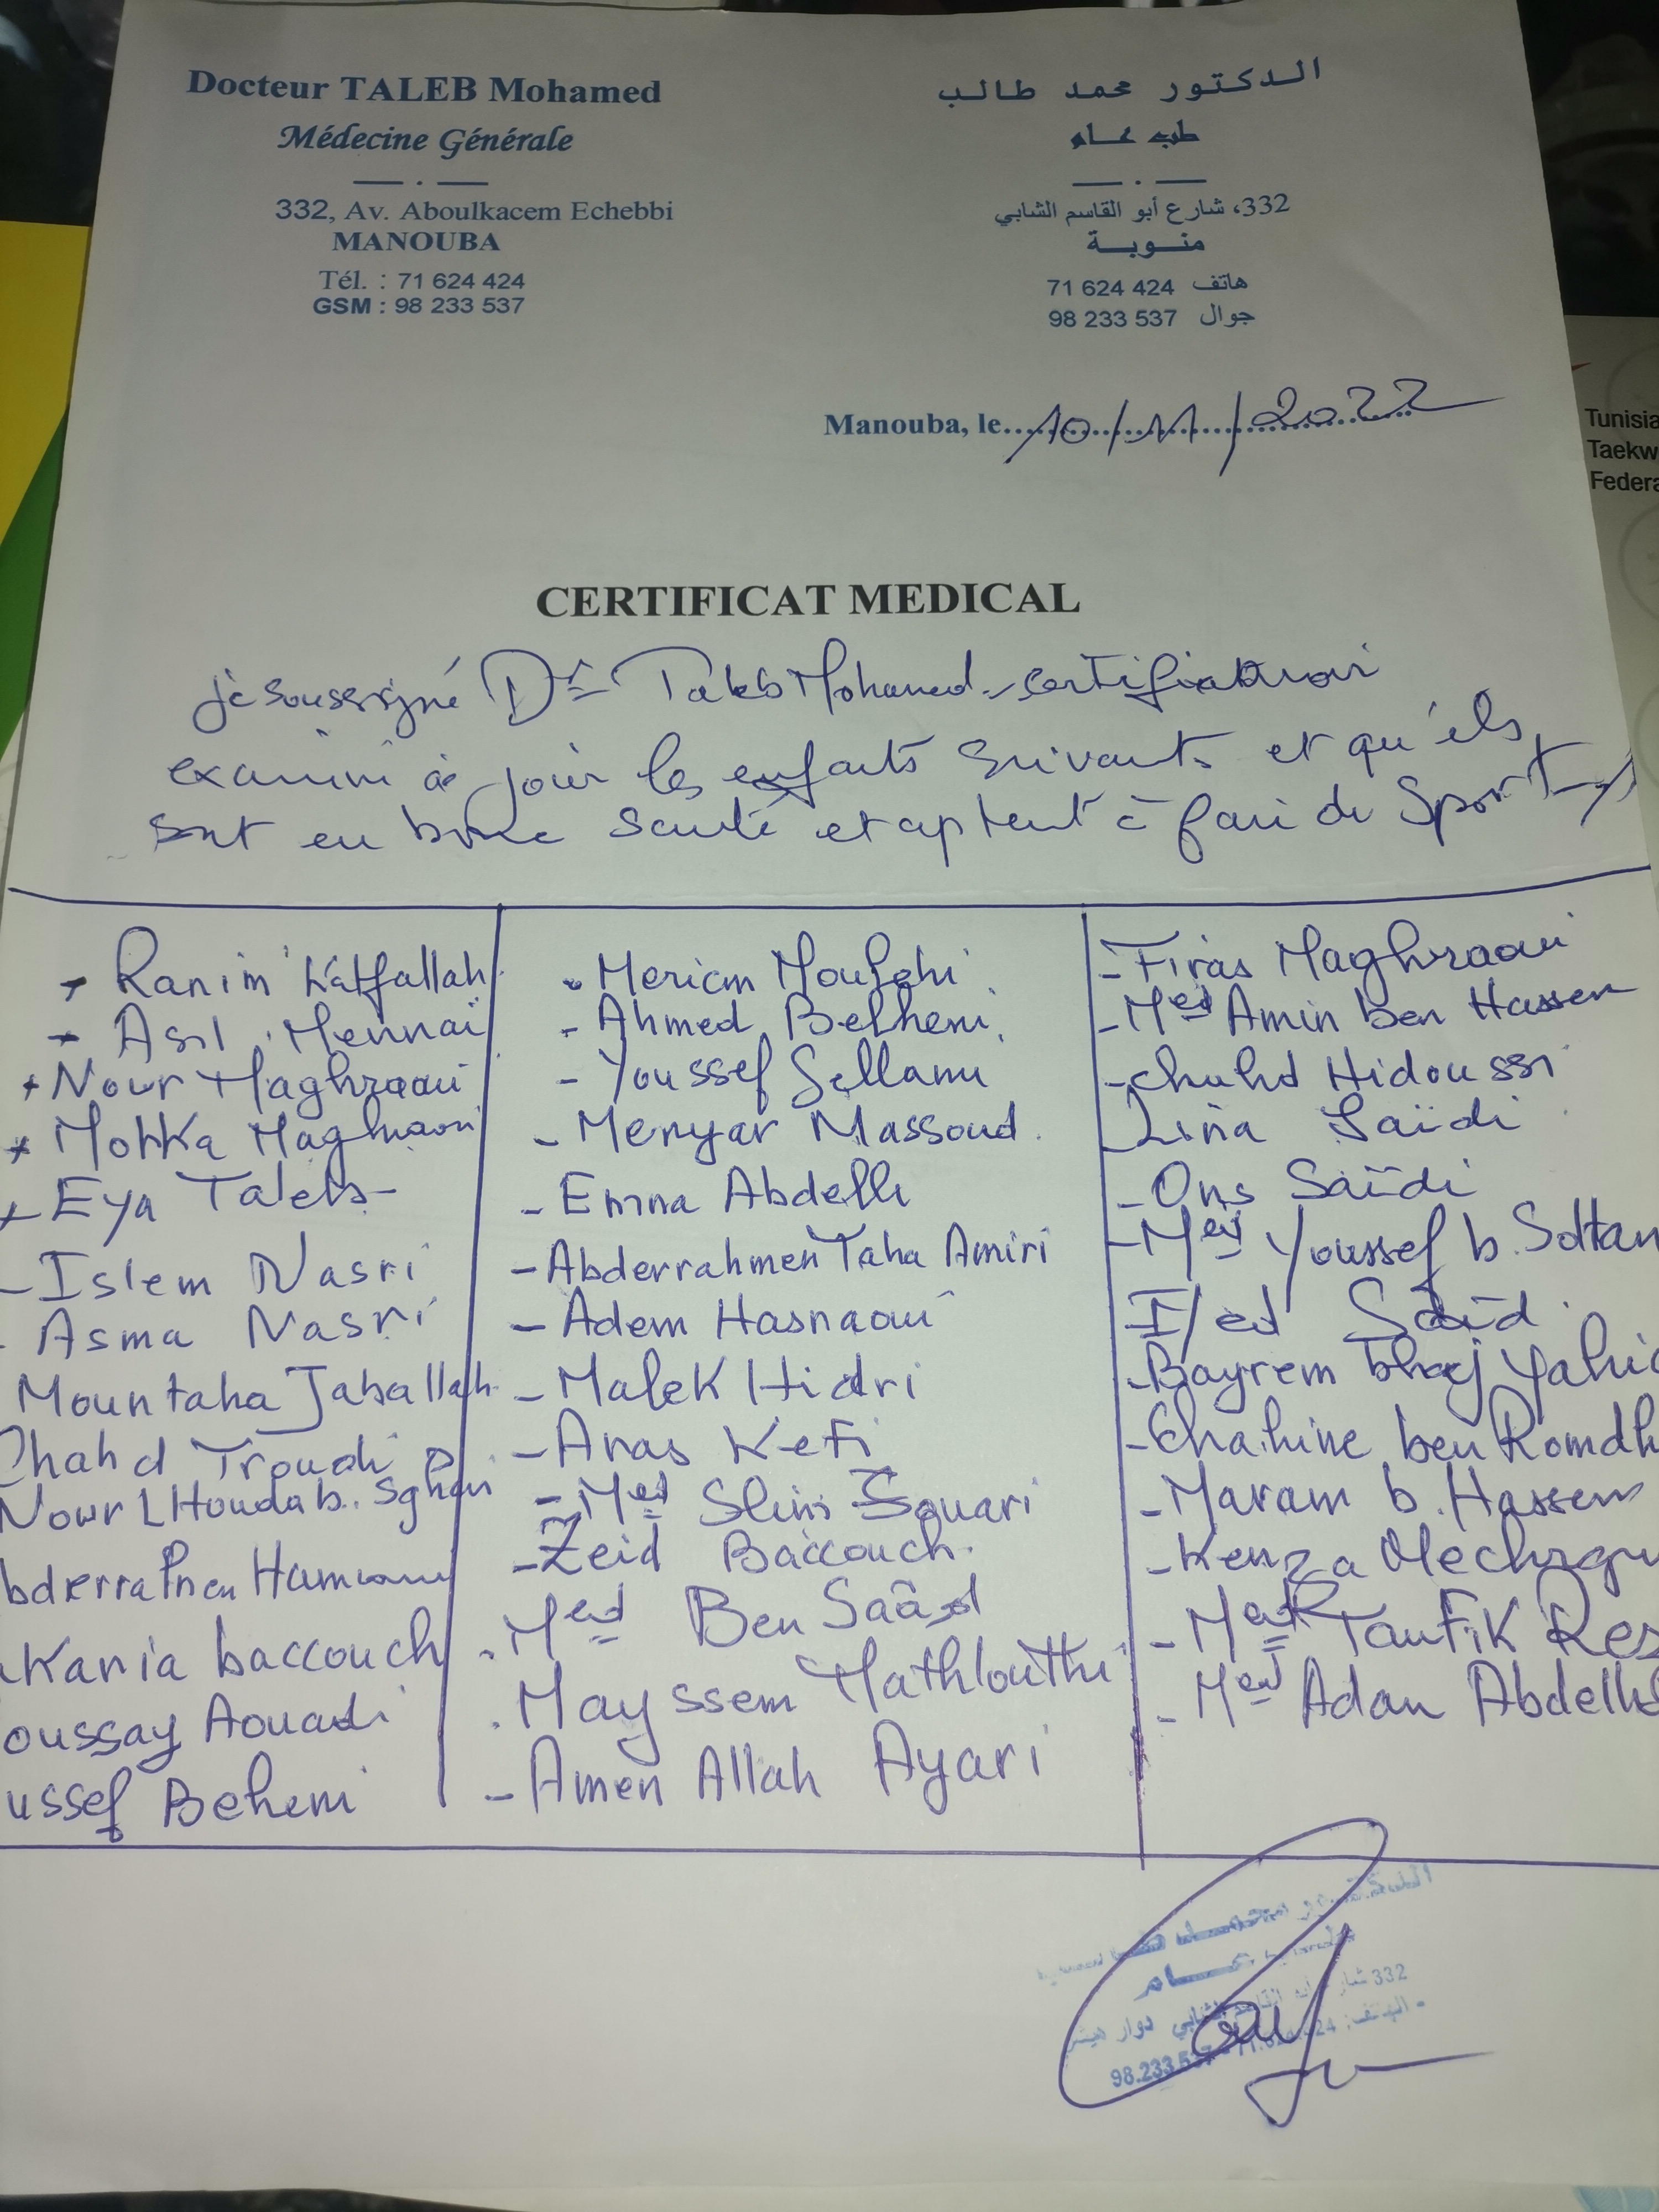 Docteur TALEB Mohamed
Médecine Générale
332, Av. Aboulkacem Echebbi
MANOUBA
Tél. : 71 624 424
GSM : 98 233 537
الدكتور محمد طالب
طب عام
332، شارع أبو القاسم الشابي
منوبة
هاتف 71 624 424
جوال 98 233 537
Manouba, le 10/11/2022
Tunisia
Taekw
Federa
CERTIFICAT MEDICAL
je soussigné Dr Taleb Mohamed certifie avoir
examiné ce jour les enfants suivants et qu'ils
sont en bonne santé et aptent à faire du Sport
+ Ranim Katfallah
+ Asil Mennai
+ Nour Maghraoui
+ Mohka Maghraoui
+ Eya Taleb
- Islem Nasri
- Asma Nasri
Mountaha Jaballah
Chahd Troudi
Nour L Houda b. Sghair
bderrahmen
Karia baccouch
oussay Aouadi
ussef Behemi
- Meriem
- Ahmed Belhemi
- Youssef Sellami
- Menyar Massoud
- Emna Abdelli
- Abderrahmen Taha Amiri
- Adem Hasnaoui
- Malek Hidri
- Anas Kefi
- Med Slim Souari
- Zeid Baccouch
- Med Ben Saâd
- Mayssem Mathlouthi
- Amen Allah Ayari
- Firas Maghraoui
- Med Amin ben Hassen
- Chahd Hidoussi
Lina Saïdi
- Ons Saïdi
- Med Youssef b. Soltan
Saïd
- Bayrem bhaj Yahia
- Chahine ben Romdh
- Maram b. Hassen
- Kenza Mechergui
- Med Taufik Rez
- Med Adan Abdelli
عام
332
98.233.537